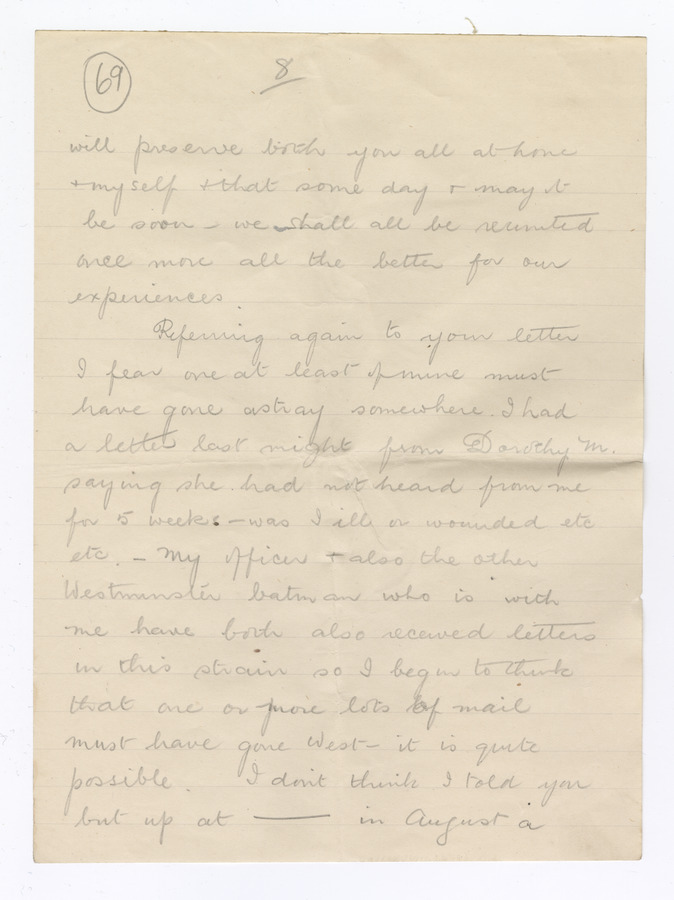 69
8
will preserve both you all at home
+ myself + that some day + may it
be soon - we shall all be reunited
once more all the better for our
experiences.
Referring again to your letter
I fear one at least of mine must
have gone astray somewhere. I had
a letter last night from Dorothy M.
saying she had not heard from me
for 5 weeks - was I ill or wounded etc
etc. - My officer + also the other
Westminster batman who is with
me have both also received letters
in this strain so I begin to think
that one or more lots of mail
must have gone West - it is quite
possible. I don't think I told you
but up at —— in August a